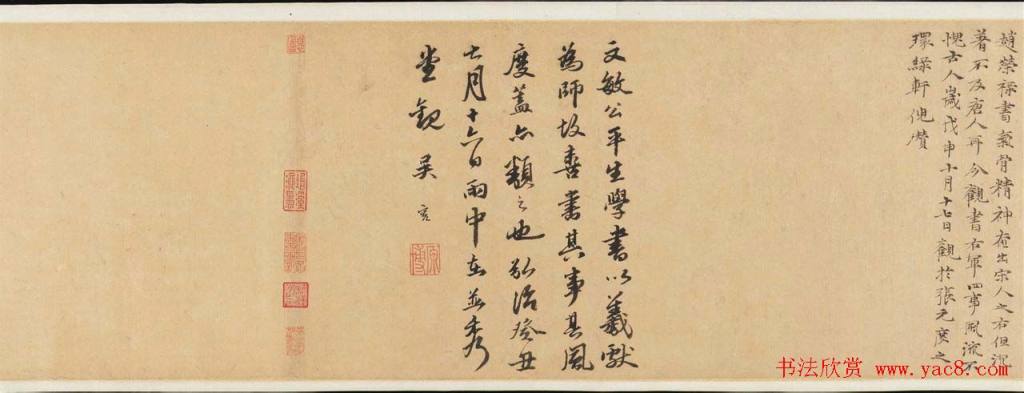 趙榮祿書氣骨精神在出宋人之右但沉
著不及唐人耳今觀書右軍四事風流不
愧古人歲戊申十月十七日觀於張元度之
環綠軒
文敏公平生學書以羲獻
為師故喜書其事其風
度蓋亦類之也弘治癸丑
七月十六日雨中在並秀
堂觀吳
书法欣赏 www.yac8.com